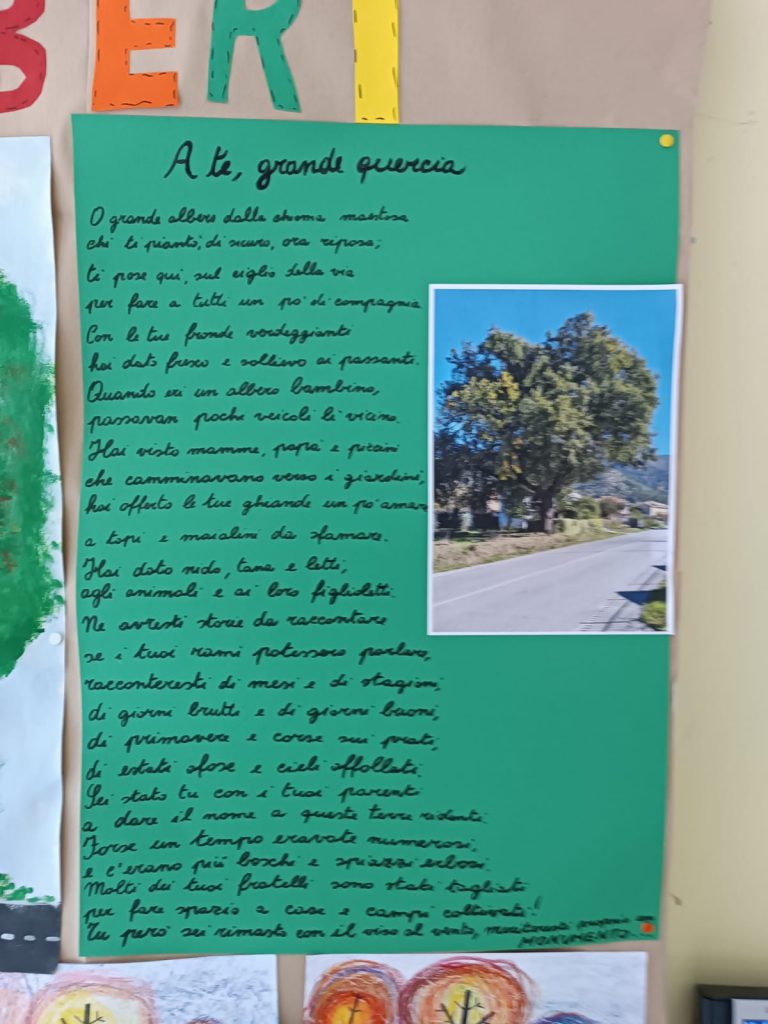 BERI
A te, grande quercia
O grande albero dalla chioma maestosa
chi ti piantò, di sicuro, ora riposa;
ti pose qui, sul ciglio della via
per fare a tutti un po' di compagnia
Con le tue fronde verdeggianti
hai dato fresco e sollievo ai passanti.
Quando eri un albero bambino,
passavan pochi veicoli lì vicino.
Hai visto mamme, papà e piccini
che camminavano verso i giardini,
hai offerto le tue ghiande un po' amare
a topi e maialini da sfamare.
Hai dato nido, tana e letti,
agli animali e ai loro figlioletti.
Ne avresti storie da raccontare
se i tuoi rami potessero parlare,
racconteresti di mesi e di stagioni,
di giorni brutti e di giorni buoni,
di primavere e corse sui prati,
di estati afose e cieli affollati.
Sei stato tu con i tuoi parenti
a dare il nome a queste terre ridenti.
Forse un tempo eravate numerosi,
e c'erano più boschi e spiazzi erbosi.
Molti dei tuoi fratelli sono stati tagliati
per fare spazio a case e campi coltivati!
Tu però sei rimasto con il viso al vento, meriteresti proprio un
MONUMENTO.